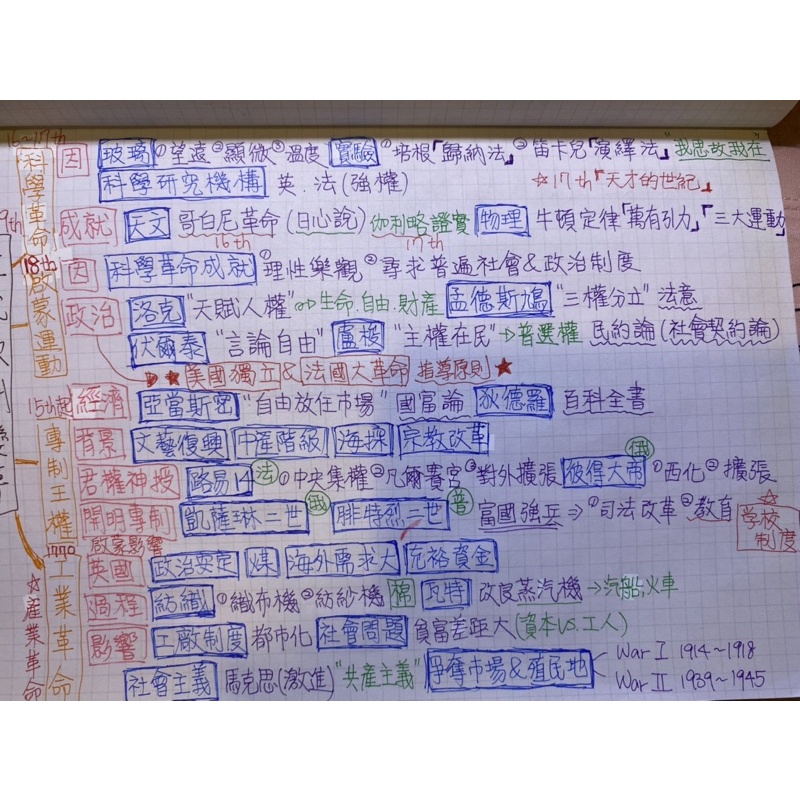 16~17th
科學革命
因 玻璃 ①望遠②顯微③溫度 實驗 ①培根「歸納法」②笛卡兒「演繹法」"我思故我在"
科學研究機構 英.法(強權) ☆17th「天才的世紀」
成就 天文 哥白尼革命(日心說) 伽利略證實 物理 牛頓定律「萬有引力」「三大運動」
16th 17th
18th
啟蒙運動
因 科學革命成就 ①理性樂觀②尋求普遍社會&政治制度
政治 洛克 "天賦人權" ⇒生命.自由.財產 孟德斯鳩 "三權分立" 法意
伏爾泰 "言論自由" 盧梭 "主權在民" →普選權 民約論(社會契約論)
★美國獨立&法國大革命 指導原則★
經濟 亞當斯密 "自由放任市場" 國富論 狄德羅 百科全書
15th起
專制王權
背景 文藝復興 中產階級 海探 宗教改革
君權神授 路易14 法 ①中央集權②凡爾賽宮③對外擴張 彼得大帝 俄 ①西化②擴張
開明專制 凱薩琳二世 俄 腓特烈二世 普 富國強兵⇒①司法改革②教育 ☆學校制度
啟蒙影響
工業革命
☆產業革命
英國 政治安定 煤 海外需求大 充裕資金
過程 紡織 ①織布機②紡紗機 棉 瓦特 改良蒸汽機→汽船,火車
影響 工廠制度 都市化 社會問題 貧富差距大(資本VS.工人)
社會主義 馬克思(激進)"共產主義" 爭奪市場&殖民地
War I 1914~1918
War II 1939~1945